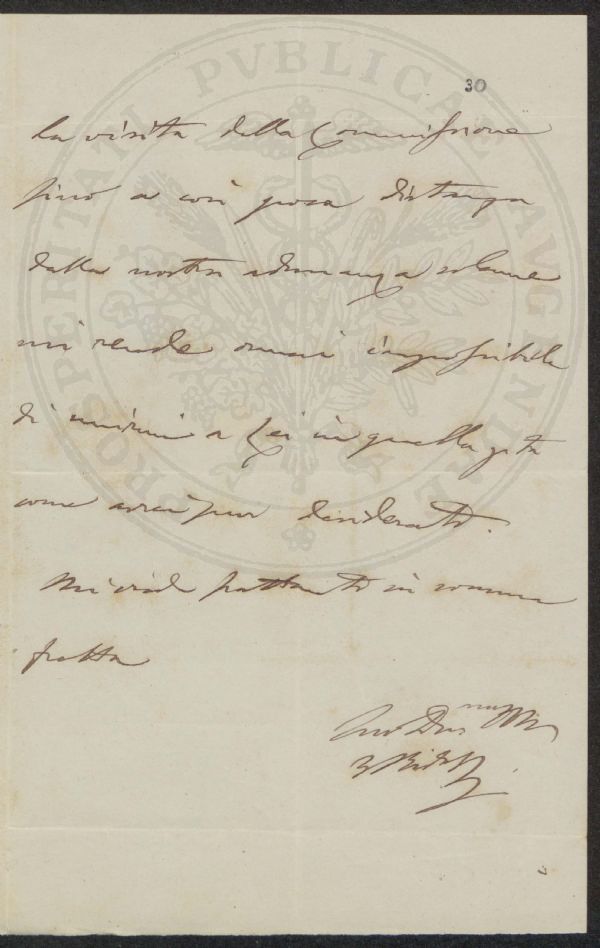 PROSPERITATI PVBLICAE AVGENDAE
30
la visita della Commissione
fino a così poca distanza
dalla nostra adunanza solenne
mi rende omai impossibile
di unirmi a Lei in quella gita
come avrei pur desiderato.
Mi creda frattanto in somma
fretta
Suo Dev.mo